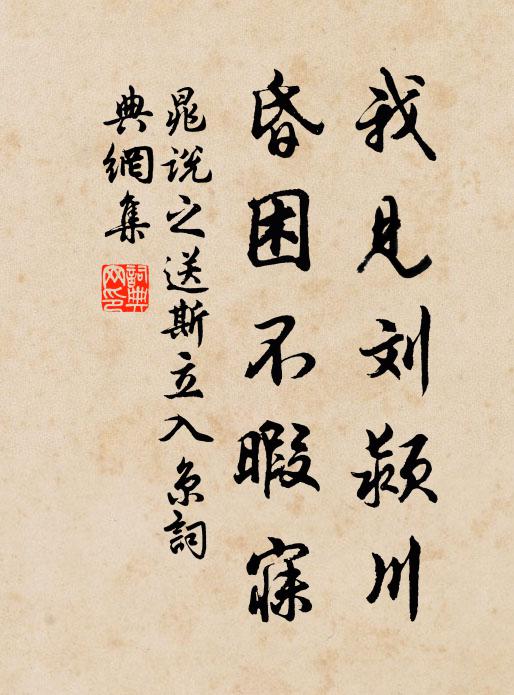 我见刘颍川
昏困不暇寐
晁说之送斯立入京词
典网集
词典网印